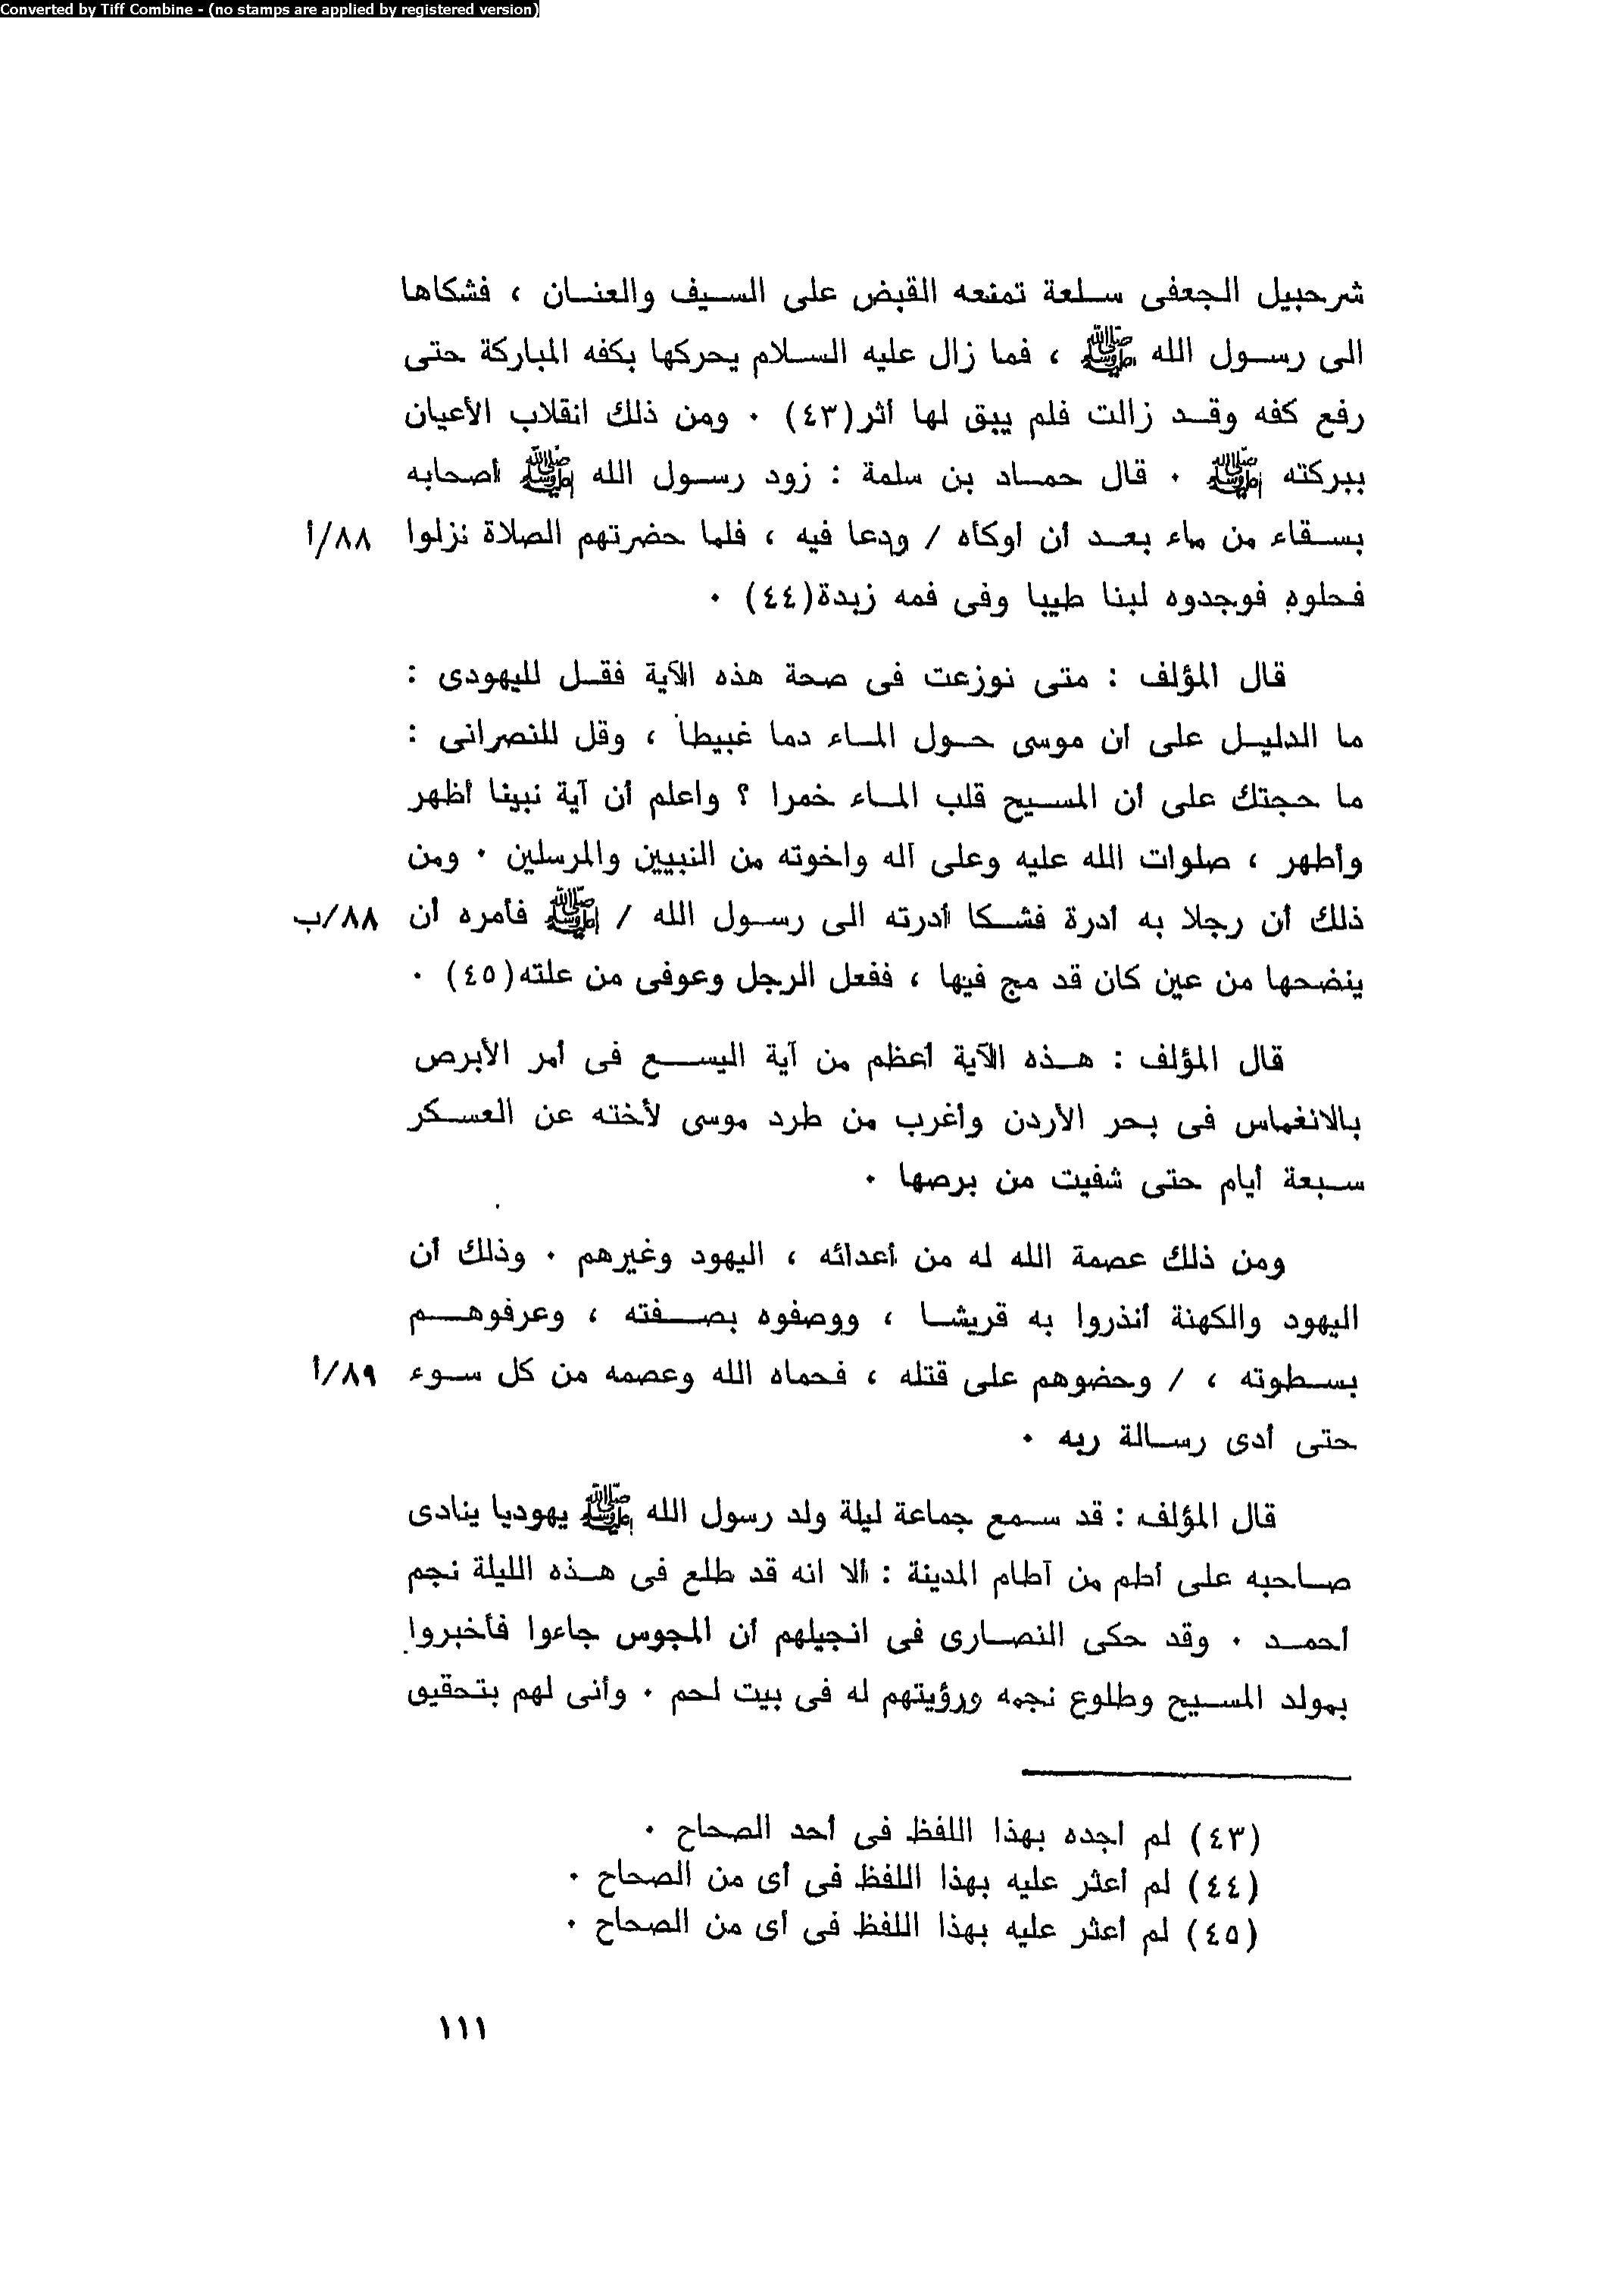 Converted by Tiff Combine - (no stamps are applied by registered version)
شرحبيل الجعفى سلعة تمنعه القبض على السيف والعنان ، فشكاها
الى رسول الله ﷺ ، فما زال عليه السلام يحركها بكفه المباركة حتى
رفع كفه وقد زالت فلم يبق لها أثر(٤٣) ٠ ومن ذلك انقلاب الأعيان
ببركته ﷺ ٠ قال حماد بن سلمة : زود رسول الله ﷺ أصحابه
بسقاء من ماء بعد أن أوكأه / ودعا فيه ، فلما حضرتهم الصلاة نزلوا ٨٨/أ
فحلوه فوجدوه لبنا طيبا وفى فمه زبدة(٤٤) ٠
قال المؤلف : متى نوزعت فى صحة هذه الآية فقل لليهودى :
ما الدليل على أن موسى حول الماء دما غبيطا ، وقل للنصرانى :
ما حجتك على أن المسيح قلب الماء خمرا ؟ واعلم أن آية نبينا أظهر
وأطهر ، صلوات الله عليه وعلى آله واخوته من النبيين والمرسلين ٠ ومن
ذلك أن رجلا به أدرة فشكا أدرته الى رسول الله / ﷺ فأمره أن ٨٨/ب
ينضحها من عين كان قد مج فيها ، ففعل الرجل وعوفى من علته(٤٥) ٠
قال المؤلف : هذه الآية أعظم من آية اليسع فى أمر الأبرص
بالانغماس فى بحر الأردن وأغرب من طرد موسى لأخته عن العسكر
سبعة أيام حتى شفيت من برصها ٠
ومن ذلك عصمة الله له من أعدائه ، اليهود وغيرهم ٠ وذلك أن
اليهود والكهنة أنذروا به قريشا ، ووصفوه بصفته ، وعرفوهم
بسطوته ، / وحضوهم على قتله ، فحماه الله وعصمه من كل سوء ٨٩/أ
حتى أدى رسالة ربه ٠
قال المؤلف : قد سمع جماعة ليلة ولد رسول الله ﷺ يهوديا ينادى
صاحبه على أطم من آطام المدينة : ألا انه قد طلع فى هذه الليلة نجم
أحمد ٠ وقد حكى النصارى فى انجيلهم أن المجوس جاءوا فأخبروا
بمولد المسيح وطلوع نجمه ورؤيتهم له فى بيت لحم ٠ وأنى لهم بتحقيق
(٤٣) لم أجده بهذا اللفظ فى أحد الصحاح ٠
(٤٤) لم أعثر عليه بهذا اللفظ فى أى من الصحاح ٠
(٤٥) لم أعثر عليه بهذا اللفظ فى أى من الصحاح ٠
١١١